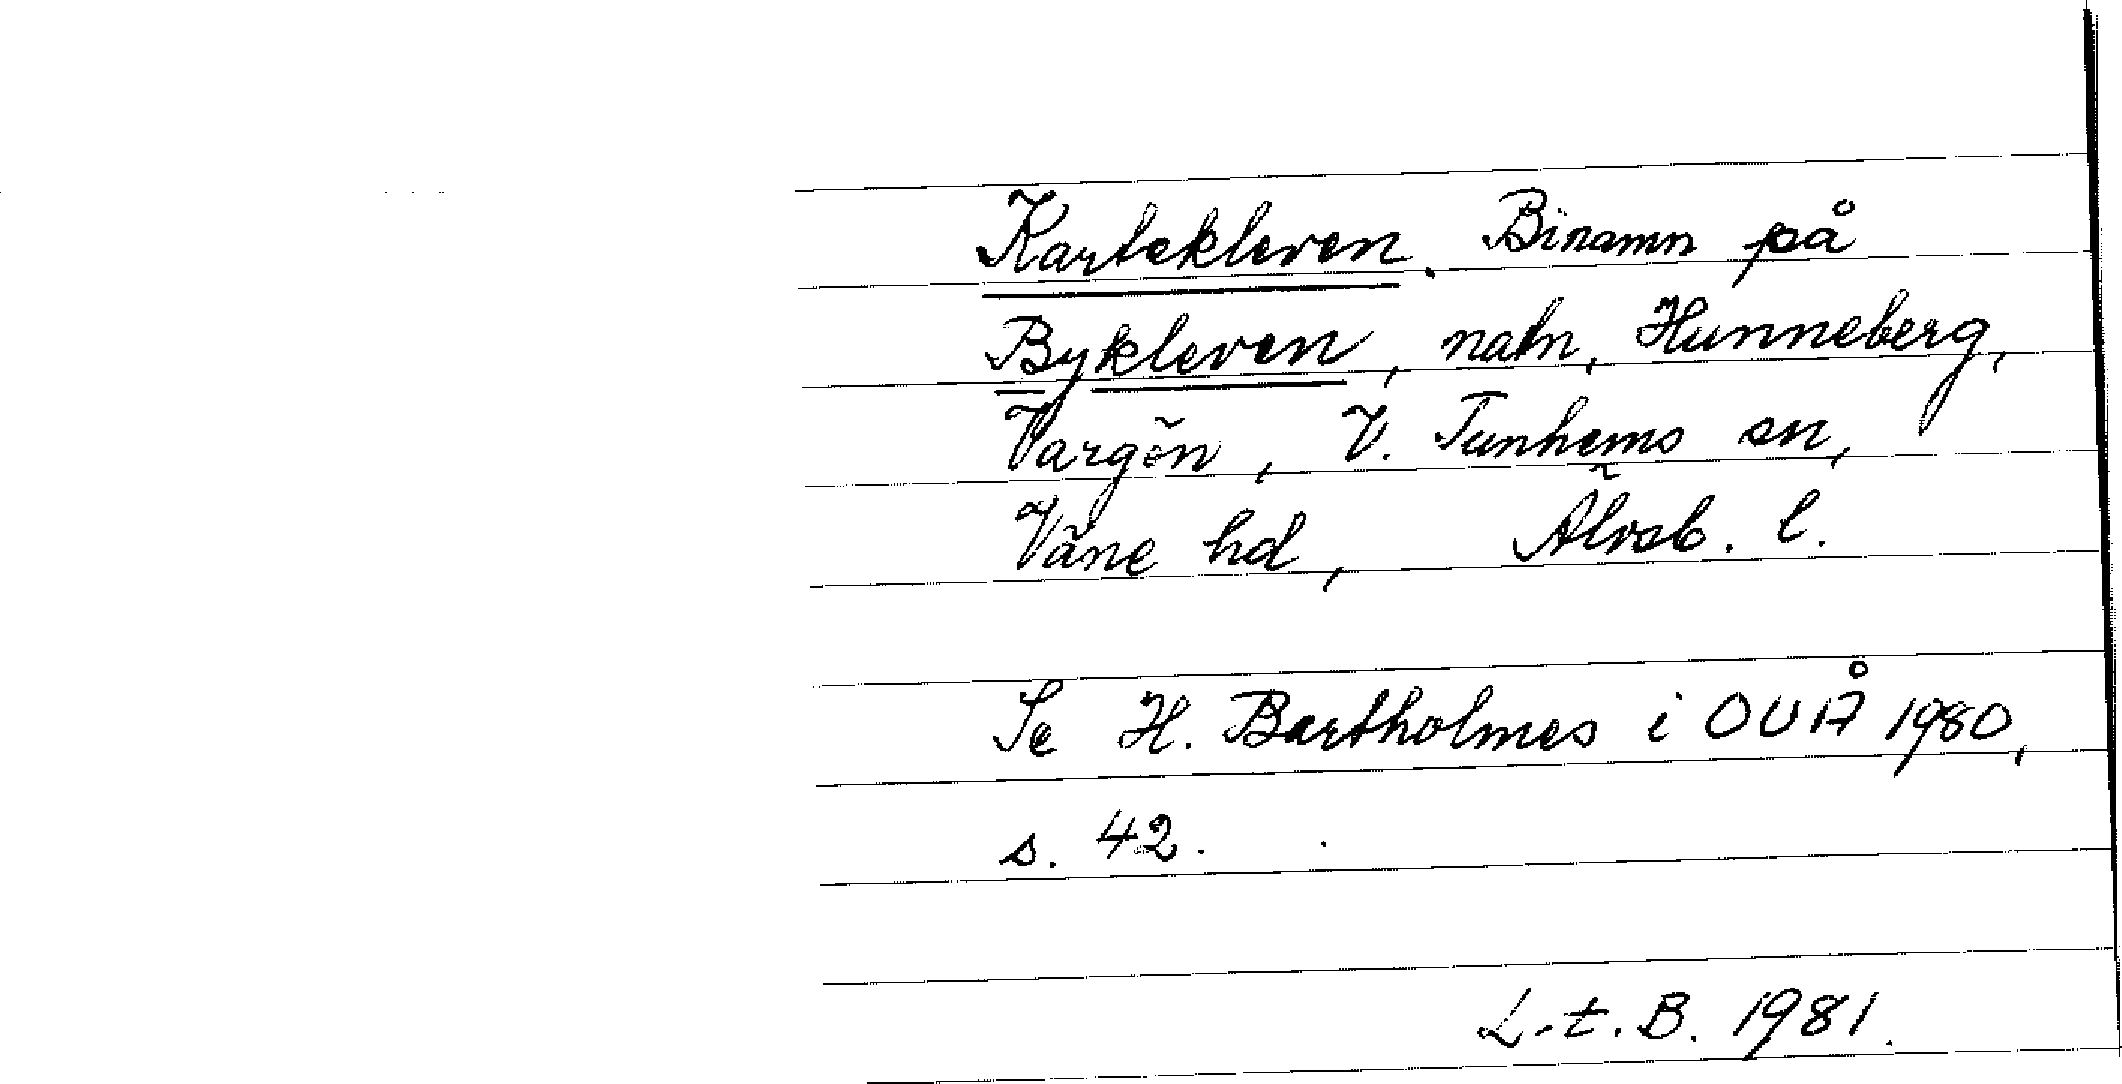 Kartekleven. Binamn på
Bykleven, natn, Hunneberg,
Vargön, V. Tunhems sn,
Väne hd, Älvsb. l.
Se H. Bartholmes i OUÅ 1980,
s. 42.
L-t. B. 1981.